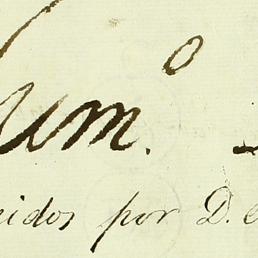 Num.º
idos por D.